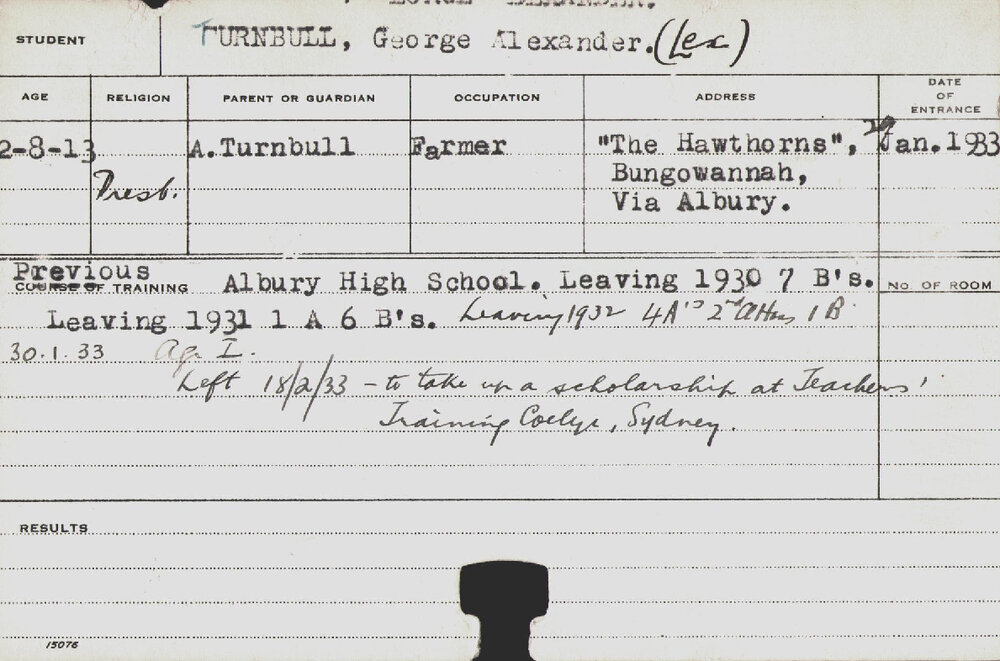 STUDENT TURNBULL, George Alexander. (Lex)
AGE RELIGION PARENT OR GUARDIAN OCCUPATION ADDRESS DATE OF ENTRANCE
2-8-13 Presb. A.Turnbull Farmer "The Hawthorns", Jan.1933
Bungowannah,
Via Albury.
Previous
COURSE OF TRAINING Albury High School. Leaving 1930 7 B's. NO. OF ROOM
Leaving 1931 1 A 6 B's. Leaving 1932 4A's 2nd 1B
30.1.33 Ag. I.
Left 18/2/33 - to take up a scholarship at Teachers'
Training College, Sydney.
RESULTS
15076